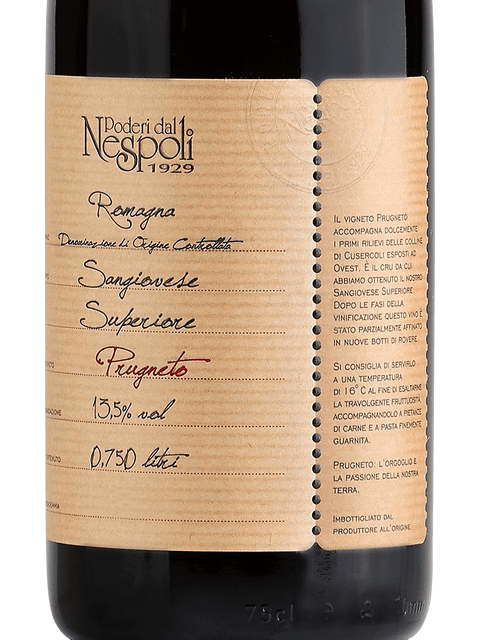 Poderi dal
Nespoli
1929
Romagna
Denominazione di Origine Controllata
Sangiovese
Superiore
Prugneto
13,5% vol
0,750 litri
Il vigneto Prugneto
accompagna dolcemente
i primi rilievi delle colline
di Cusercoli esposti ad
Ovest. È il cru da cui
abbiamo ottenuto il nostro
Sangiovese Superiore.
Dopo le fasi della
vinificazione questo vino è
stato parzialmente affinato
in nuove botti di rovere.
Si consiglia di servirlo
a una temperatura
di 16°C al fine di esaltarne
la travolgente fruttuosità
accompagnandolo a pietanze
di carne e a pasta finemente
guarnita.
Prugneto: l'orgoglio e
la passione della nostra
terra.
Imbottigliato dal
produttore all'origine
75cl